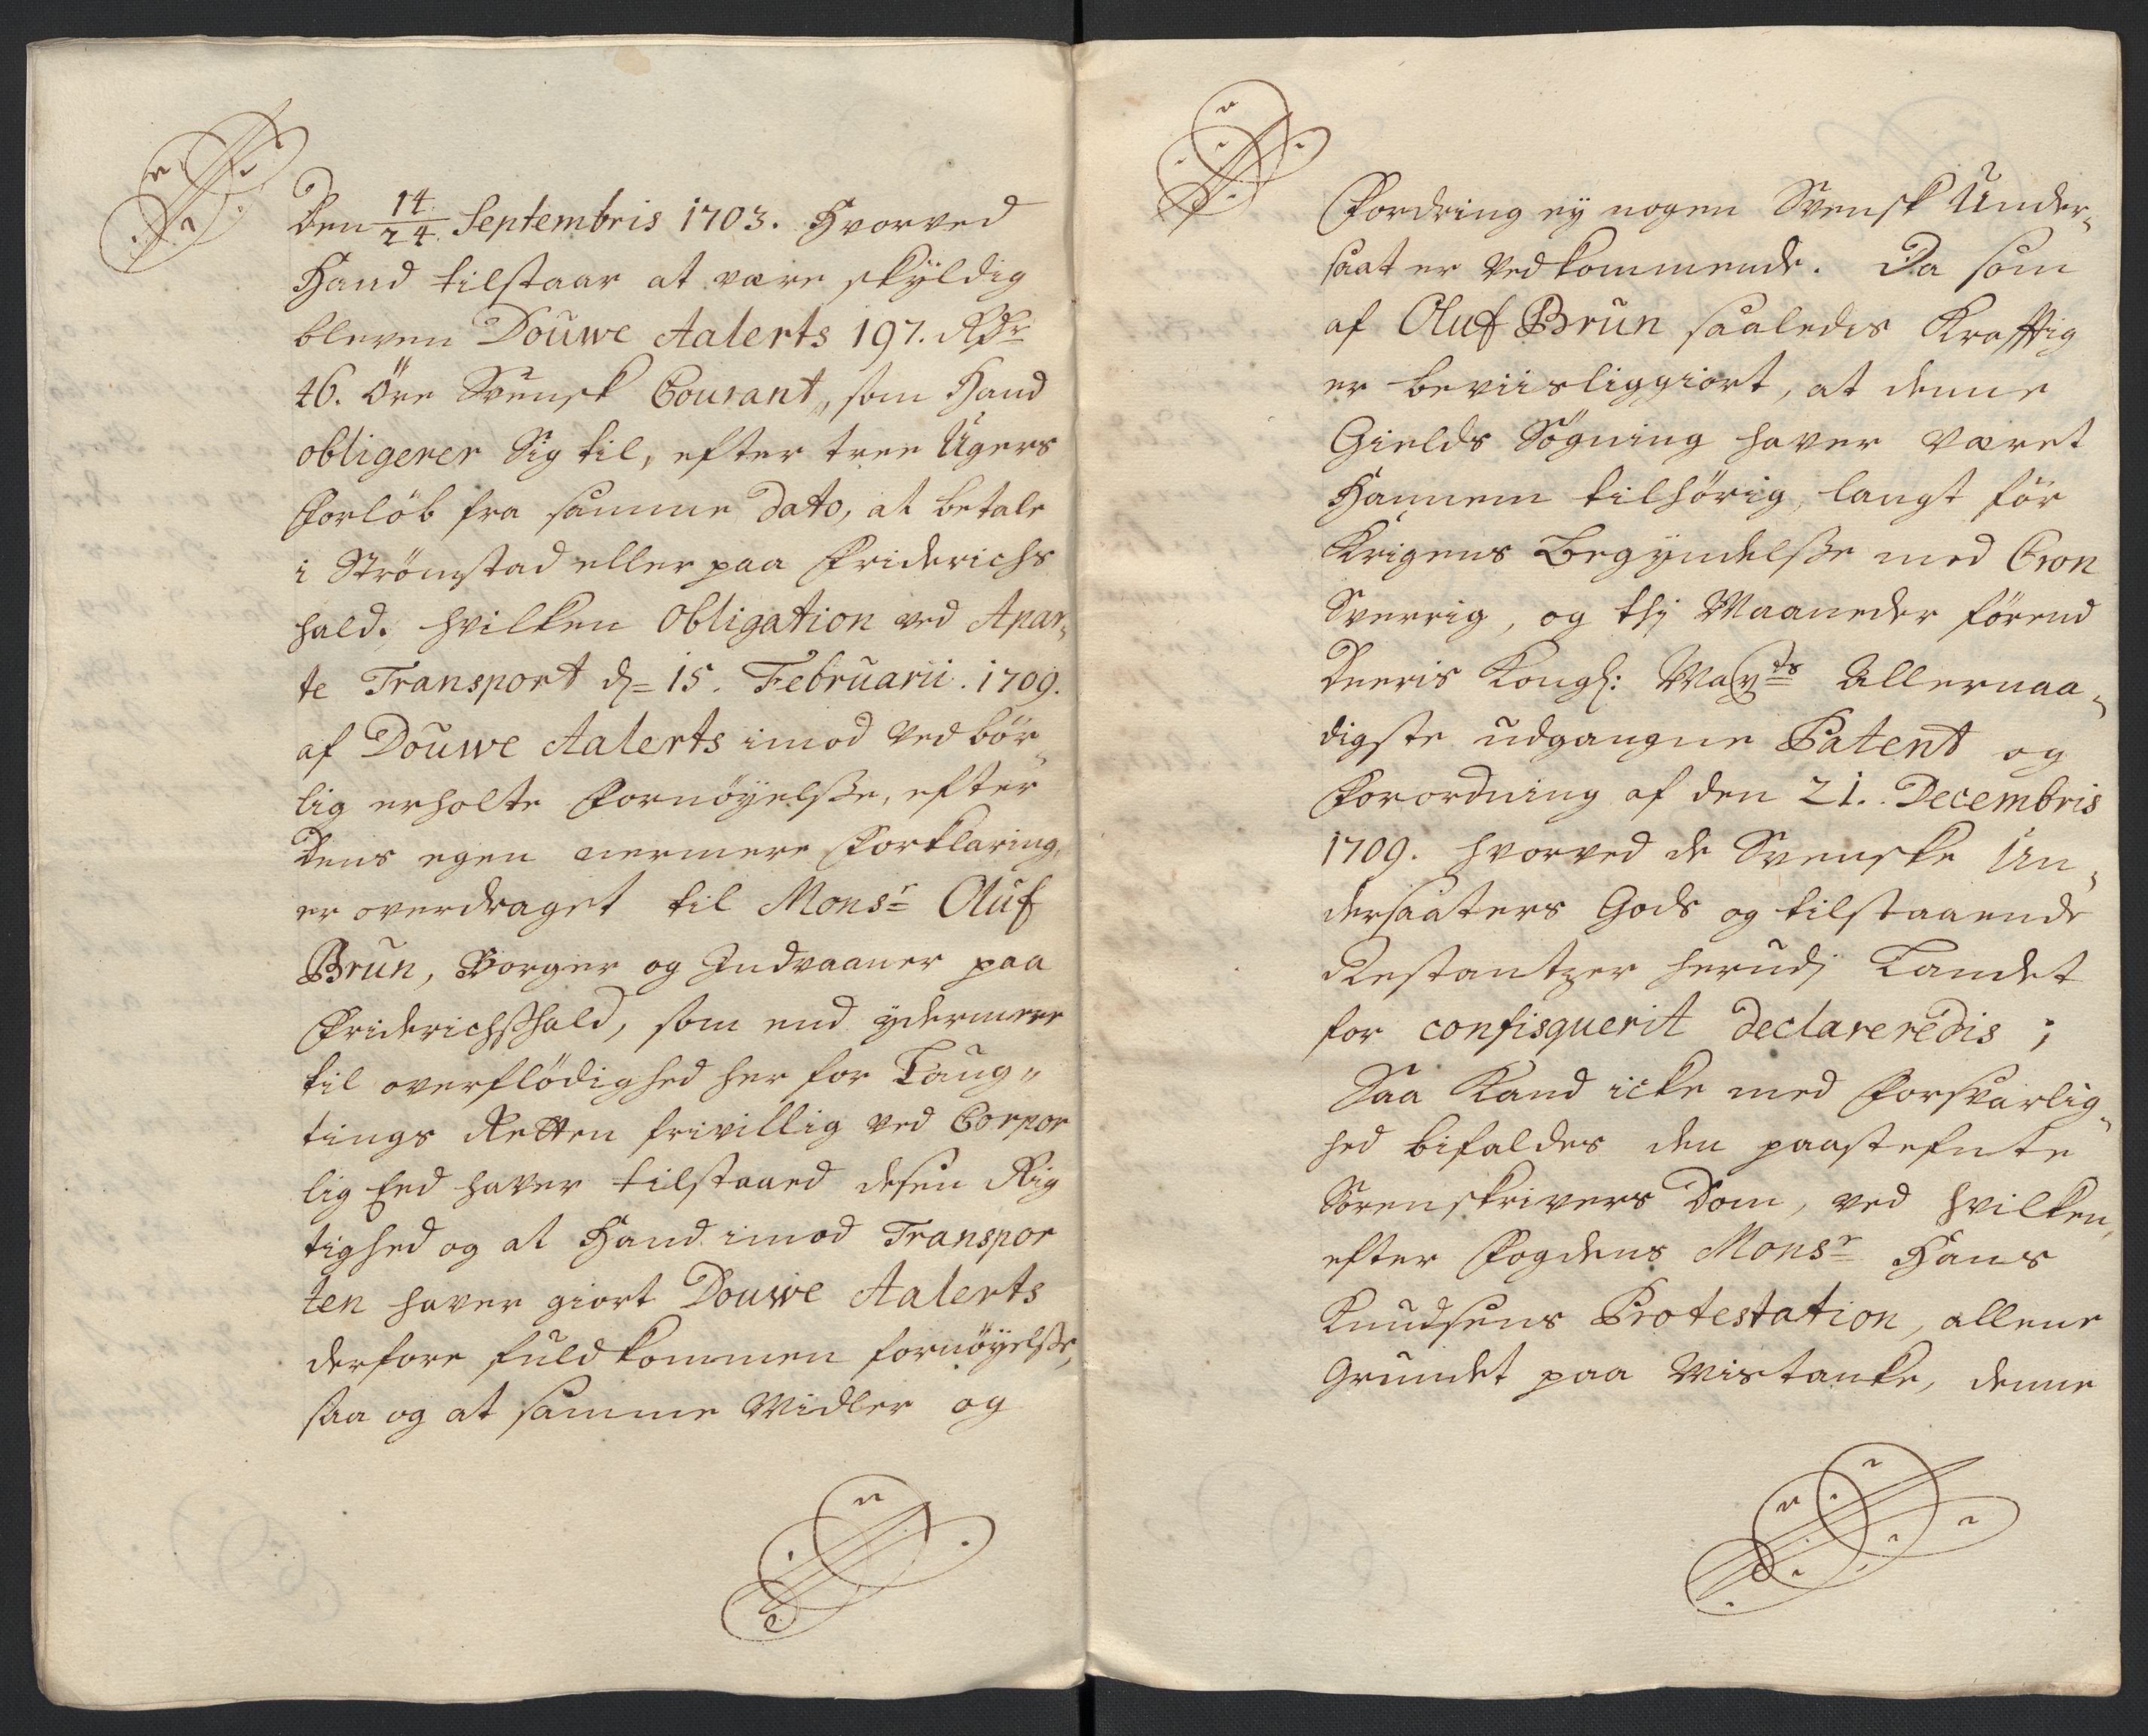 Den 14/24 Septembris 1703. Hvorved
Hand tilstaar at være skÿldig
bleven Douwe Aalerts 197. Rdr
46. Öre Svensk Courant, som Hand
obligerer Sig til, efter tree Ugers
Forlöb fra samme Dato, at betale
i Strömstad eller paa Friderichs
hald. Hvilken Obligation ved Apar-
te Transport d= 15. Februarii. 1709.
af Douwe Aalerts imod Vedbör-
lig erholte Fornöyelsße, efter
Dens egen nermere Forklaring,
er overdraget til Monsr Oluf
Brun, Borger og Indvaaner paa
Friderichshald, som end ydermere
til overflödighed her for Laug-
tings Retten frivillig ved Corpor
lig Eed haver tilstaaed desen Rig
tighed og at Hand imod Transpor
ten haver giort Douwe Aalerts
derfore fuldkommen fornöyelsße,
saa og at samme Midler og
Fordring ey nogen Svensk Under-
saat er Vedkommende. Da som
af Oluf Brun saaledes Krafftig
er beviisliggiort, at denne
Gields Sögning haver været
Hannem tilhörig, langt för
Krigens Begyndelsße med Cron
Sverrig, og thj Maaneder förend
Deeris Kongl: Mayts Allernaa-
digste udgangne Patent og
Forordning af den 21. Decembris
1709. hvorved de Svenske Un-
dersaaters Gods og tilstaaende
Restantzer herudj Landet
for confisquerit declareredis;
Saa Kand icke med Forsvarlig-
hed bifaldes den paastefnte
Sorenskrivers Dom, ved hvilken,
efter Fogdens Monsr Hans
Knudsens Protestation, allene
Grundet paa Mistanke, denne